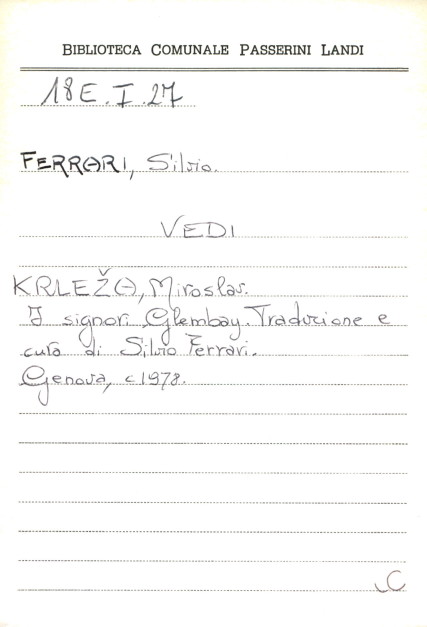 BIBLIOTECA COMUNALE PASSERINI LANDI
18E.I.27
FERRARI, Silvio.
VEDI
KRLEŽA, Miroslav.
I signori Glembay. Traduzione e
cura di Silvio Ferrari.
Genova, c1978.
C